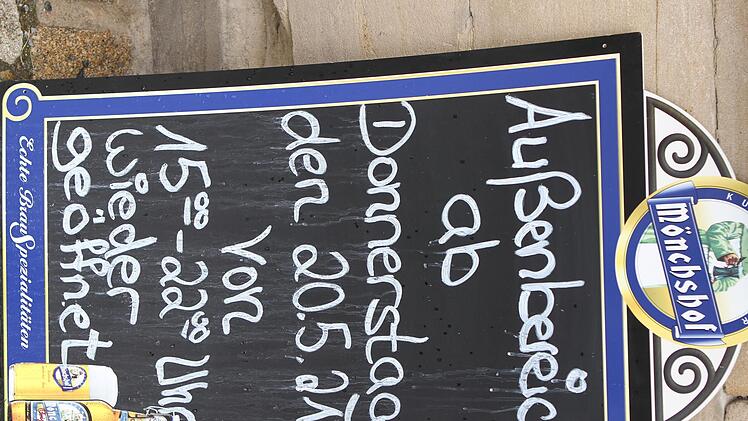 KU
Mönchshof
Außenbereic
ab
Donnerstag
den 20.5.21
von
15⁰⁰-22⁰⁰ Uhr
wieder
geöffnet
Echte BrauSpezialitäten